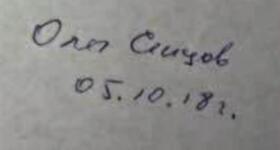 Олег Сенцов
05.10.18г.